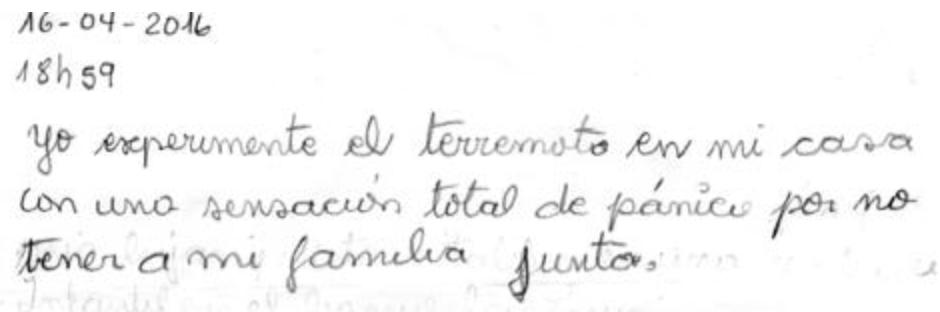 16-04-2016
18h59
Yo experimente el terremoto en mi casa
con una sensación total de pánico por no
tener a mi familia junta.